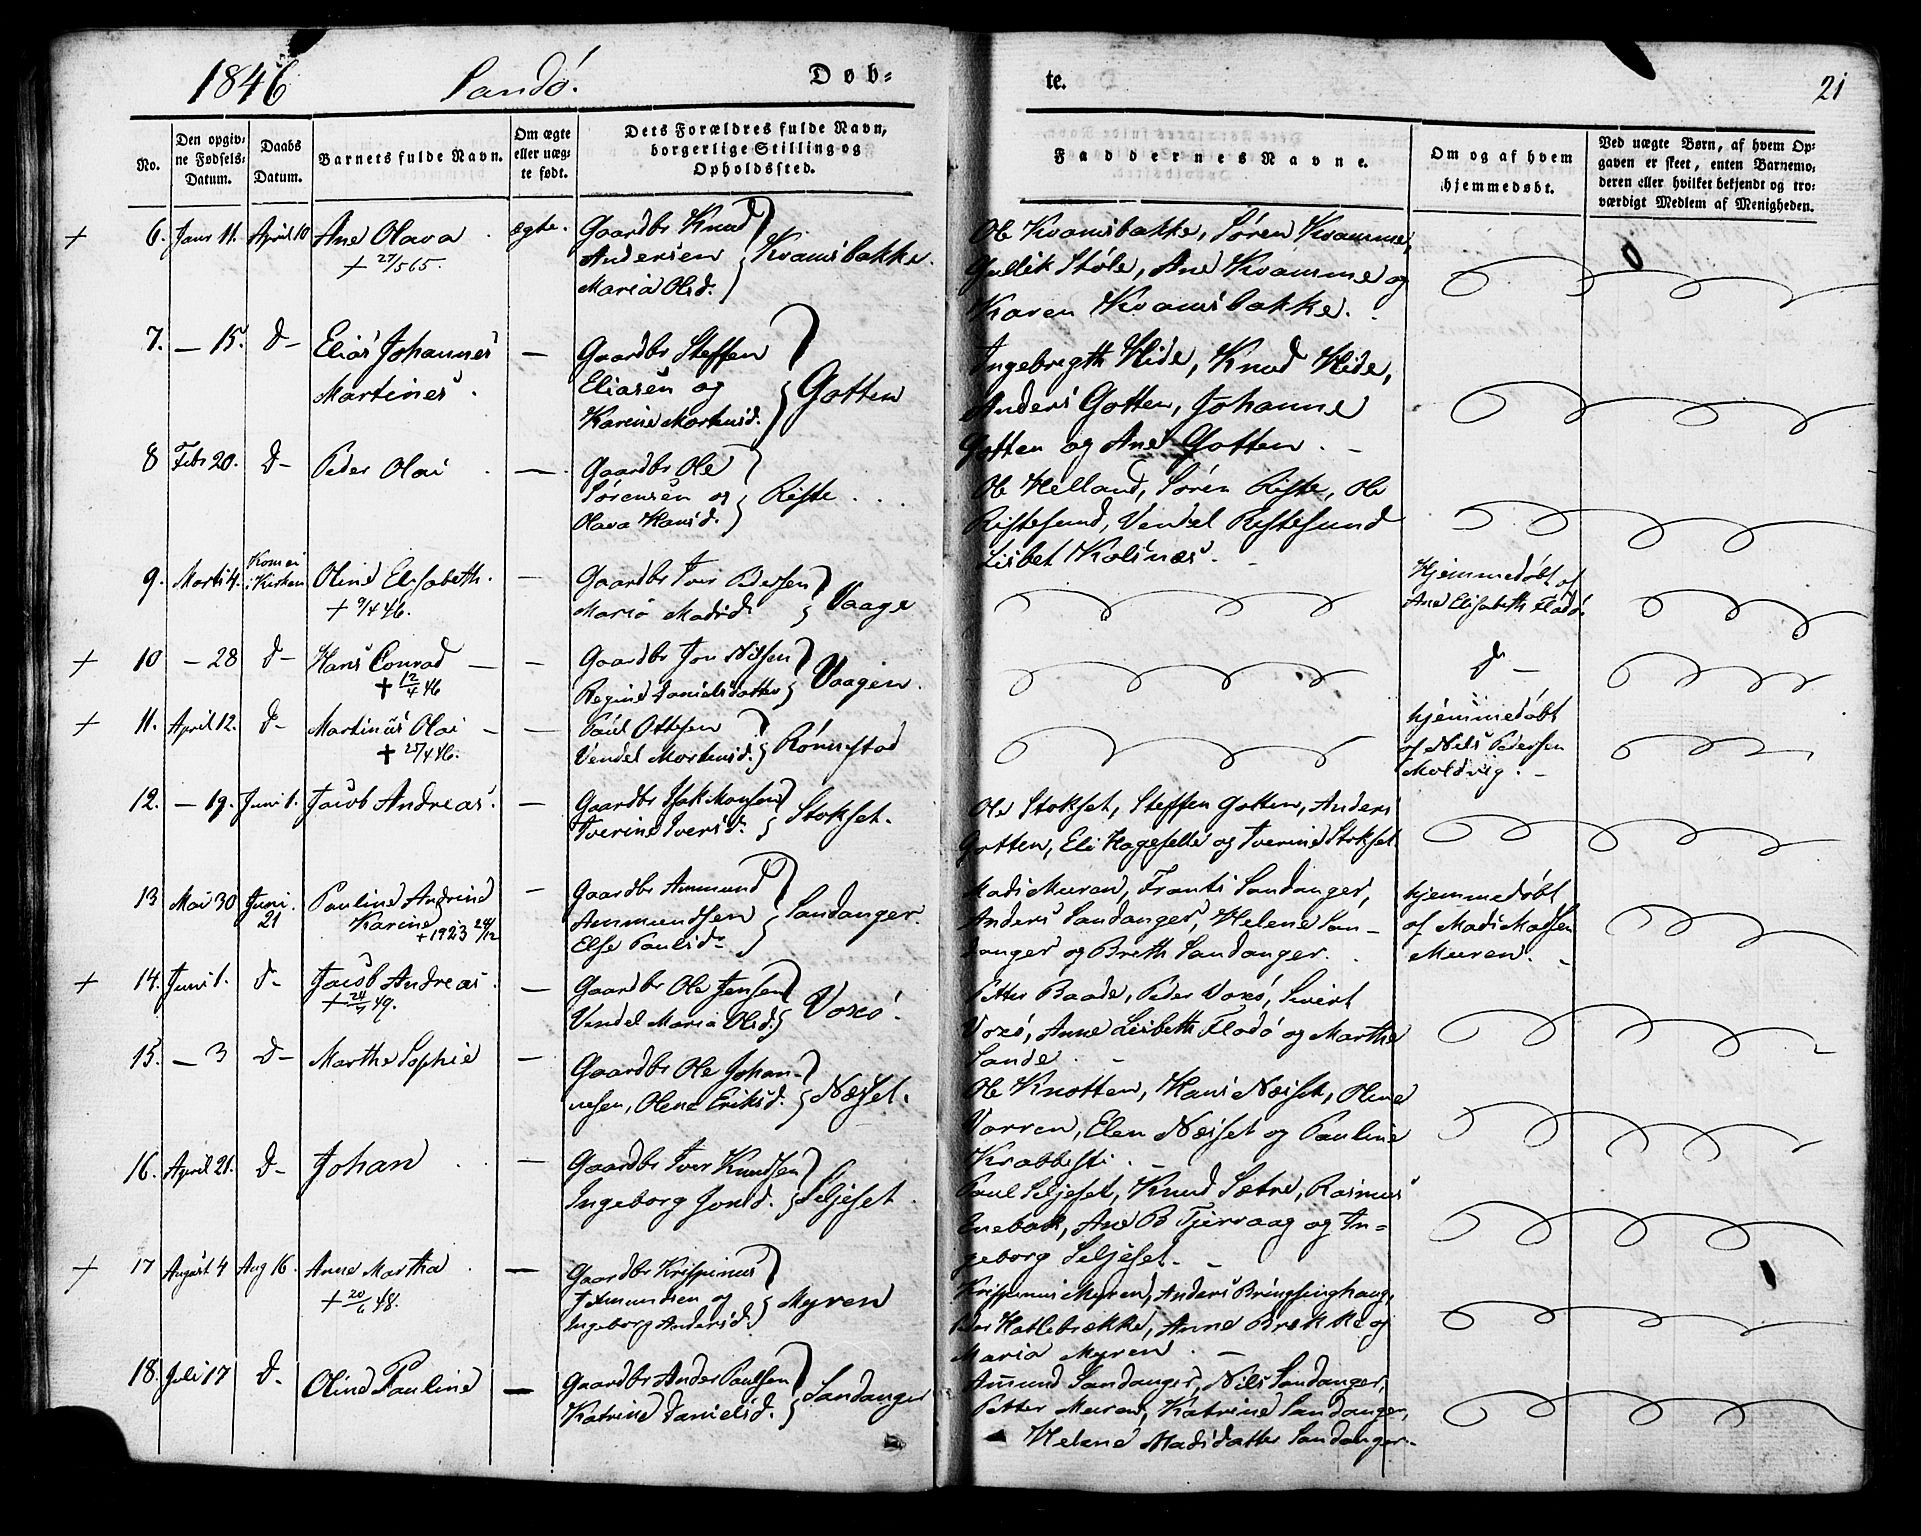 1846 Sandö. Døb-
te. 21
No.
Den opgiv-
ne Fødsels-
Datum.
Daabs
Datum.
Barnets fulde Navn.
Om ægte
eller uæg-
te født.
Dets Forældres fulde Navn,
borgerlige Stilling og
Opholdssted.
Faddernes Navne.
Om og af hvem
hjemmedøbt.
Ved uægte Børn, af hvem Op-
gaven er skeet, enten Barnemo-
deren eller hvilket bekjendt og tro-
værdigt Medlem af Menigheden.
+ 6. Janr 11. April 10 Ane Olava ægte.
+ 27/5 65.
Gaardbr Knud
Andersen
Maria Olsd.
Kvamsbakke.
Ole Kvamsbakke, Søren Kvamme,
Gullik Støle, Ane Kvamme og
Karen Kvamsbakke.
7. — 15. d— Elias Johannes —
Martines.
Gaardbr Steffen
Eliasen og
Karine Mortensd.
Gotten
Ingebregth Hide, Knud Hide,
Anders Gotten, Johanne
Gotten og Ane Gotten. —
8 Febr 20. d— Peder Olai —
Gaardbr Ole
Sørensen og
Olava Hansd.
Riste
Ole Helland, Søren Riste, Ole
Ristesund, Vendel Ristesund
Lisbet Kolsnæs. —
9. Marts 4. Kom ei
i Kirken Oline Elisabeth. —
+ 9/4 46.
Gaardbr Iver Pedersen
Maria Madsd.
Vaage
Hjemmedøbt af
Ane Elisabeth Flaaø.
+ 10 — 28 d— Hans Conrad — —
+ 12/4 46
Gaardbr Jon Nilsen
Regine Danielsdatter
Vaagen.
d —
+ 11. April 12. d— Martinus Olai — —
+ 25/4 46.
Paul Ottesen
Vendel Mortensd.
Rönnestad
hjemmedøbt
af Nels Pedersen
Moldvig. —
12. — 19. Juni 1. Jacob Andreas. —
Gaardbr Isak Monsen
Iverine Iversd.
Stokset.
Ole Stokset, Steffen Gotten, Anders
Gotten, Eli Hageselle og Iverine Stokset.
13 Mai 30 Juni
21 Pauline Andrine —
Karine
+ 1923 24/12
Gaardbr Ammund
Ammundsen
Else Paulsd.
Sandanger.
Mads Muren, Frants Sandanger,
Anders Sandanger, Helene San-
danger og Breth Sandanger.
hjemmedøbt
af Mads Madsen
Muren. —
+ 14. Juni 1. d— Jacob Andreas. —
+ 24/4 49.
Gaardbr Ole Jensen
Vendel Maria Olsd.
Voxö.
Petter Baade, Peder Voxö, Sivert
Voxö, Anne Lisbeth Flaaø og Marthe
Sande. —
15. — 3 d— Marthe Sophie —
Gaardbr Ole Johan-
nesen, Olene Eriksd.
Næset.
Ole Knotten, Hans Næset, Oline
Vorren, Elen Næset og Pauline
Krabbesti. —
16. April 21. d— Johan —
Gaardbr Iver Knudsen
Ingeborg Jonsd.
Siljeset.
Paul Siljeset, Knud Sætre, Rasmus
Enebak, Ane B Tjervaag og In-
geborg Siljeset. —
+ 17 August 4 Aug 16. Anne Martha —
+ 20/6 48.
Gaardbr Krispinus
Ingeborg Andersd.
Myren
Krispinus Myren, Anders Bringsinghaug,
Peder Hatlebrække, Anne Brække og
Maria Myren. —
18. Juli 17 d— Oline Pauline —
Gaardbr Anders Paulsen
Katrine Danielsd.
Sandanger
Amund Sandanger, Nils Sandanger,
Petter Muren, Katrine Sandanger,
Helene Madsdatter Sandanger.